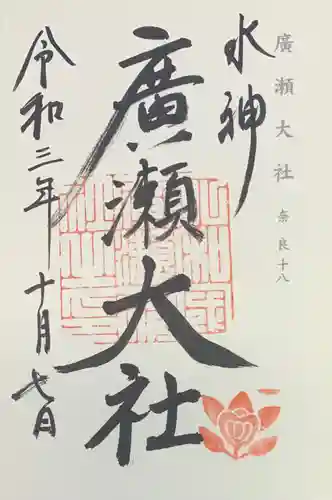 廣瀬大社 奈良十八
水神
廣瀬大社
令和三年 十月七日